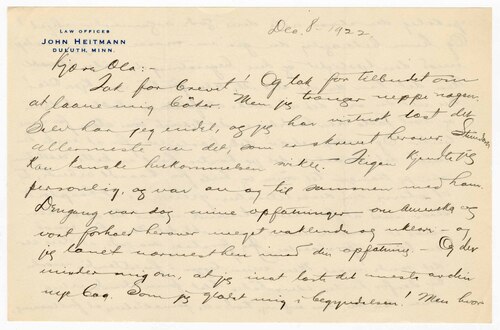 LAW OFFICES
JOHN HEITMANN
DULUTH, MINN.
Dec. 8 - 1922
Kjære Ola: -
Tak for brevet! Og tak for tilbudet om
at laane mig bøker. Men jeg trænger neppe nogen.
Selv har jeg endel, og jeg har vistnok læst det
allermeste av det, som er skrevet herover.
kan kanske hukommelsen svikte. kjendte jeg
personlig, og var av og til sammen med ham.
Dengang var dog mine opfatninger om Amerika og
vort forhold herover meget vaklende og uklare - og
jeg lænet nærmest hen med din opfatning - Og det
minder mig om, at jeg just læste det meste av din
nye bog. Som jeg glædet mig i begyndelsen! Men hvor